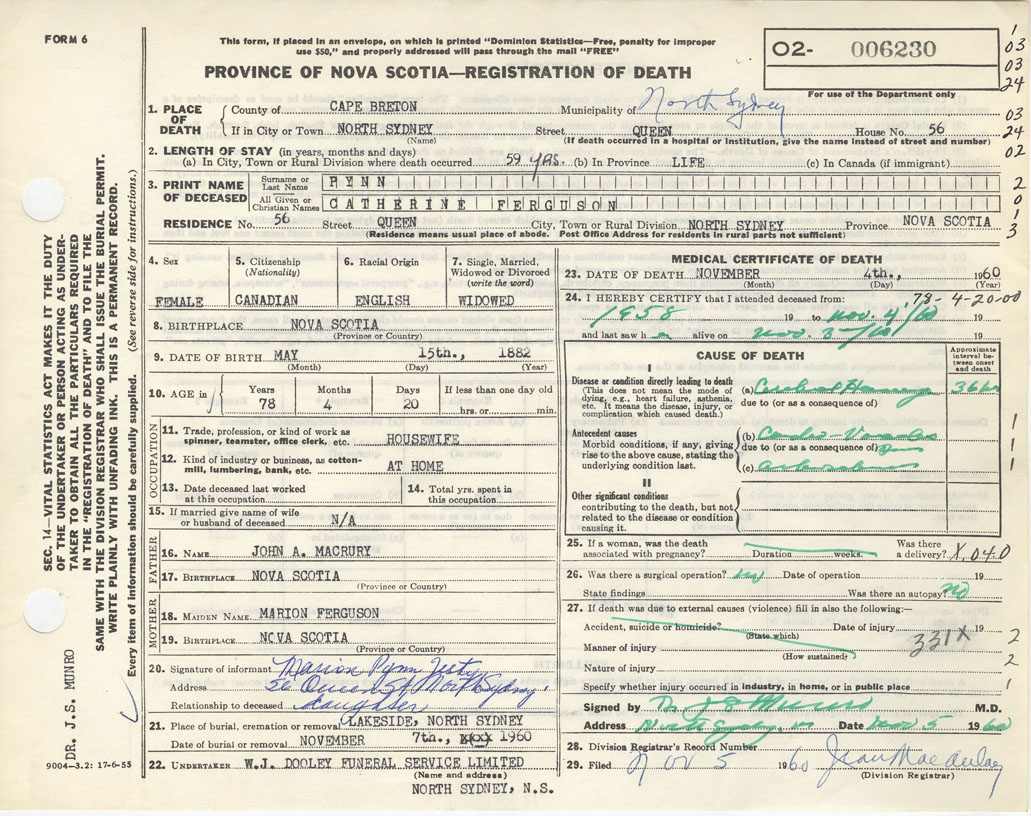 FORM 6
This form, if placed in an envelope, on which is printed "Dominion Statistics—Free, penalty for improper
use $50," and properly addressed will pass through the mail "FREE"
PROVINCE OF NOVA SCOTIA—REGISTRATION OF DEATH
O2- 006230
For use of the Department only
1
03
03
24
03
24
02
2
0
1
3
1. PLACE OF DEATH County of CAPE BRETON Municipality of North Sydney
If in City or Town NORTH SYDNEY Street QUEEN House No. 56
(Name) (If death occurred in a hospital or Institution, give the name instead of street and number)
2. LENGTH OF STAY (in years, months and days)
(a) In City, Town or Rural Division where death occurred 59 yrs. (b) In Province LIFE (c) In Canada (if immigrant)
3. PRINT NAME OF DECEASED Surname or Last Name PYNN
All Given or Christian Names CATHERINE FERGUSON
RESIDENCE No. 56 Street QUEEN City, Town or Rural Division NORTH SYDNEY Province NOVA SCOTIA
(Residence means usual place of abode. Post Office Address for residents in rural parts not sufficient)
4. Sex FEMALE
5. Citizenship (Nationality) CANADIAN
6. Racial Origin ENGLISH
7. Single, Married, Widowed or Divorced (write the word) WIDOWED
8. BIRTHPLACE NOVA SCOTIA
(Province or Country)
9. DATE OF BIRTH MAY 15th., 1882
(Month) (Day) (Year)
10. AGE in Years 78 Months 4 Days 20 If less than one day old hrs. or min.
OCCUPATION
11. Trade, profession, or kind of work as spinner, teamster, office clerk, etc. HOUSEWIFE
12. Kind of industry or business, as cotton-mill, lumbering, bank, etc. AT HOME
13. Date deceased last worked at this occupation
14. Total yrs. spent in this occupation
15. If married give name of wife or husband of deceased N/A
FATHER
16. NAME JOHN A. MACRURY
17. BIRTHPLACE NOVA SCOTIA
(Province or Country)
MOTHER
18. MAIDEN NAME MARION FERGUSON
19. BIRTHPLACE NOVA SCOTIA
(Province or Country)
20. Signature of informant Marion Pynn
Address 56 Queen St North Sydney.
Relationship to deceased daughter
21. Place of burial, cremation or removal LAKESIDE, NORTH SYDNEY
Date of burial or removal NOVEMBER 7th., 1960
22. UNDERTAKER W.J. DOOLEY FUNERAL SERVICE LIMITED
(Name and address)
NORTH SYDNEY, N.S.
MEDICAL CERTIFICATE OF DEATH
23. DATE OF DEATH NOVEMBER 4th., 1960
(Month) (Day) (Year)
78-4-20-00
24. I HEREBY CERTIFY that I attended deceased from:
1958 19 to Nov. 4/60 19
and last saw h alive on Nov. 3/60 19
CAUSE OF DEATH
Approximate interval between onset and death
I
Disease or condition directly leading to death (a) Cerebral 36
(This does not mean the mode of dying, e.g., heart failure, asthenia, etc. It means the disease, injury, or complication which caused death.)
due to (or as a consequence of)
Antecedent causes (b)
Morbid conditions, if any, giving rise to the above cause, stating the underlying condition last.
due to (or as a consequence of)
(c)
1
1
1
II
Other significant conditions contributing to the death, but not related to the disease or condition causing it.
25. If a woman, was the death associated with pregnancy? Duration weeks. Was there a delivery? X.040
26. Was there a surgical operation? no Date of operation 19
State findings Was there an autopsy? no
27. If death was due to external causes (violence) fill in also the following:—
Accident, suicide or homicide? Date of injury 19
(State which)
331X
Manner of injury
(How sustained)
Nature of injury
2
2
1
Specify whether injury occurred in industry, in home, or in public place
Signed by J S Munro M.D.
Address North Sydney Date Nov 5 1960
28. Division Registrar's Record Number
29. Filed Nov 5 1960 Jean
(Division Registrar)
SEC. 14—VITAL STATISTICS ACT MAKES IT THE DUTY
OF THE UNDERTAKER OR PERSON ACTING AS UNDER-
TAKER TO OBTAIN ALL THE PARTICULARS REQUIRED
IN THE "REGISTRATION OF DEATH" AND TO FILE THE
SAME WITH THE DIVISION REGISTRAR WHO SHALL ISSUE THE BURIAL PERMIT.
WRITE PLAINLY WITH UNFADING INK. THIS IS A PERMANENT RECORD.
Every item of information should be carefully supplied. (See reverse side for instructions.)
DR. J.S. MUNRO
9004—3.2: 17-6-55